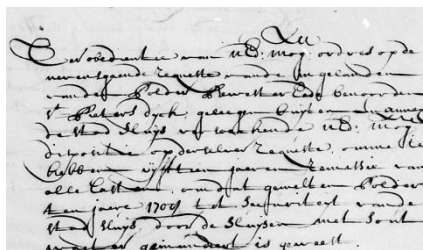 Ter obedientie van UEd: Mog: ordres op de
nevensgaende Requeste vande Ingelanden
vanden Polder benoorden
St Pieters Dyck, gelegen buijten en annex
de stad Sluys versoeckende UEd: Mog:
dispositie op deselve Requeste, omme te
hebben vijftien jaeren Remissie van
alle lasten, omdat gemelten Polder
ten jaere 170 tot securiteijt vande
stad Sluijs door de Sluijsen met Sout
water geinundeert is geweest.